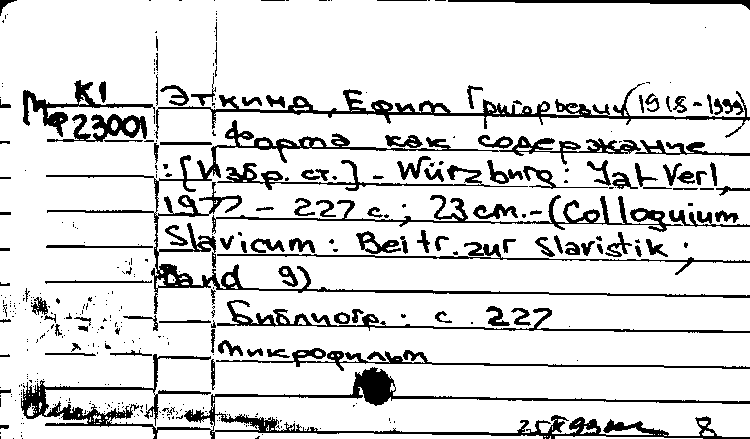 К1
МФ23001
Эткинд, Ефим Григорьевич (1918-1999)
Форма как содержание
: [Избр. ст.] - Würzburg: Jal-Verl,
1977 - 227 с.; 23 cm. - (Colloquium
Slavicum: Beitr. zur Slavistik;
Band 9)
Библиогр.: с 227
Микрофильм